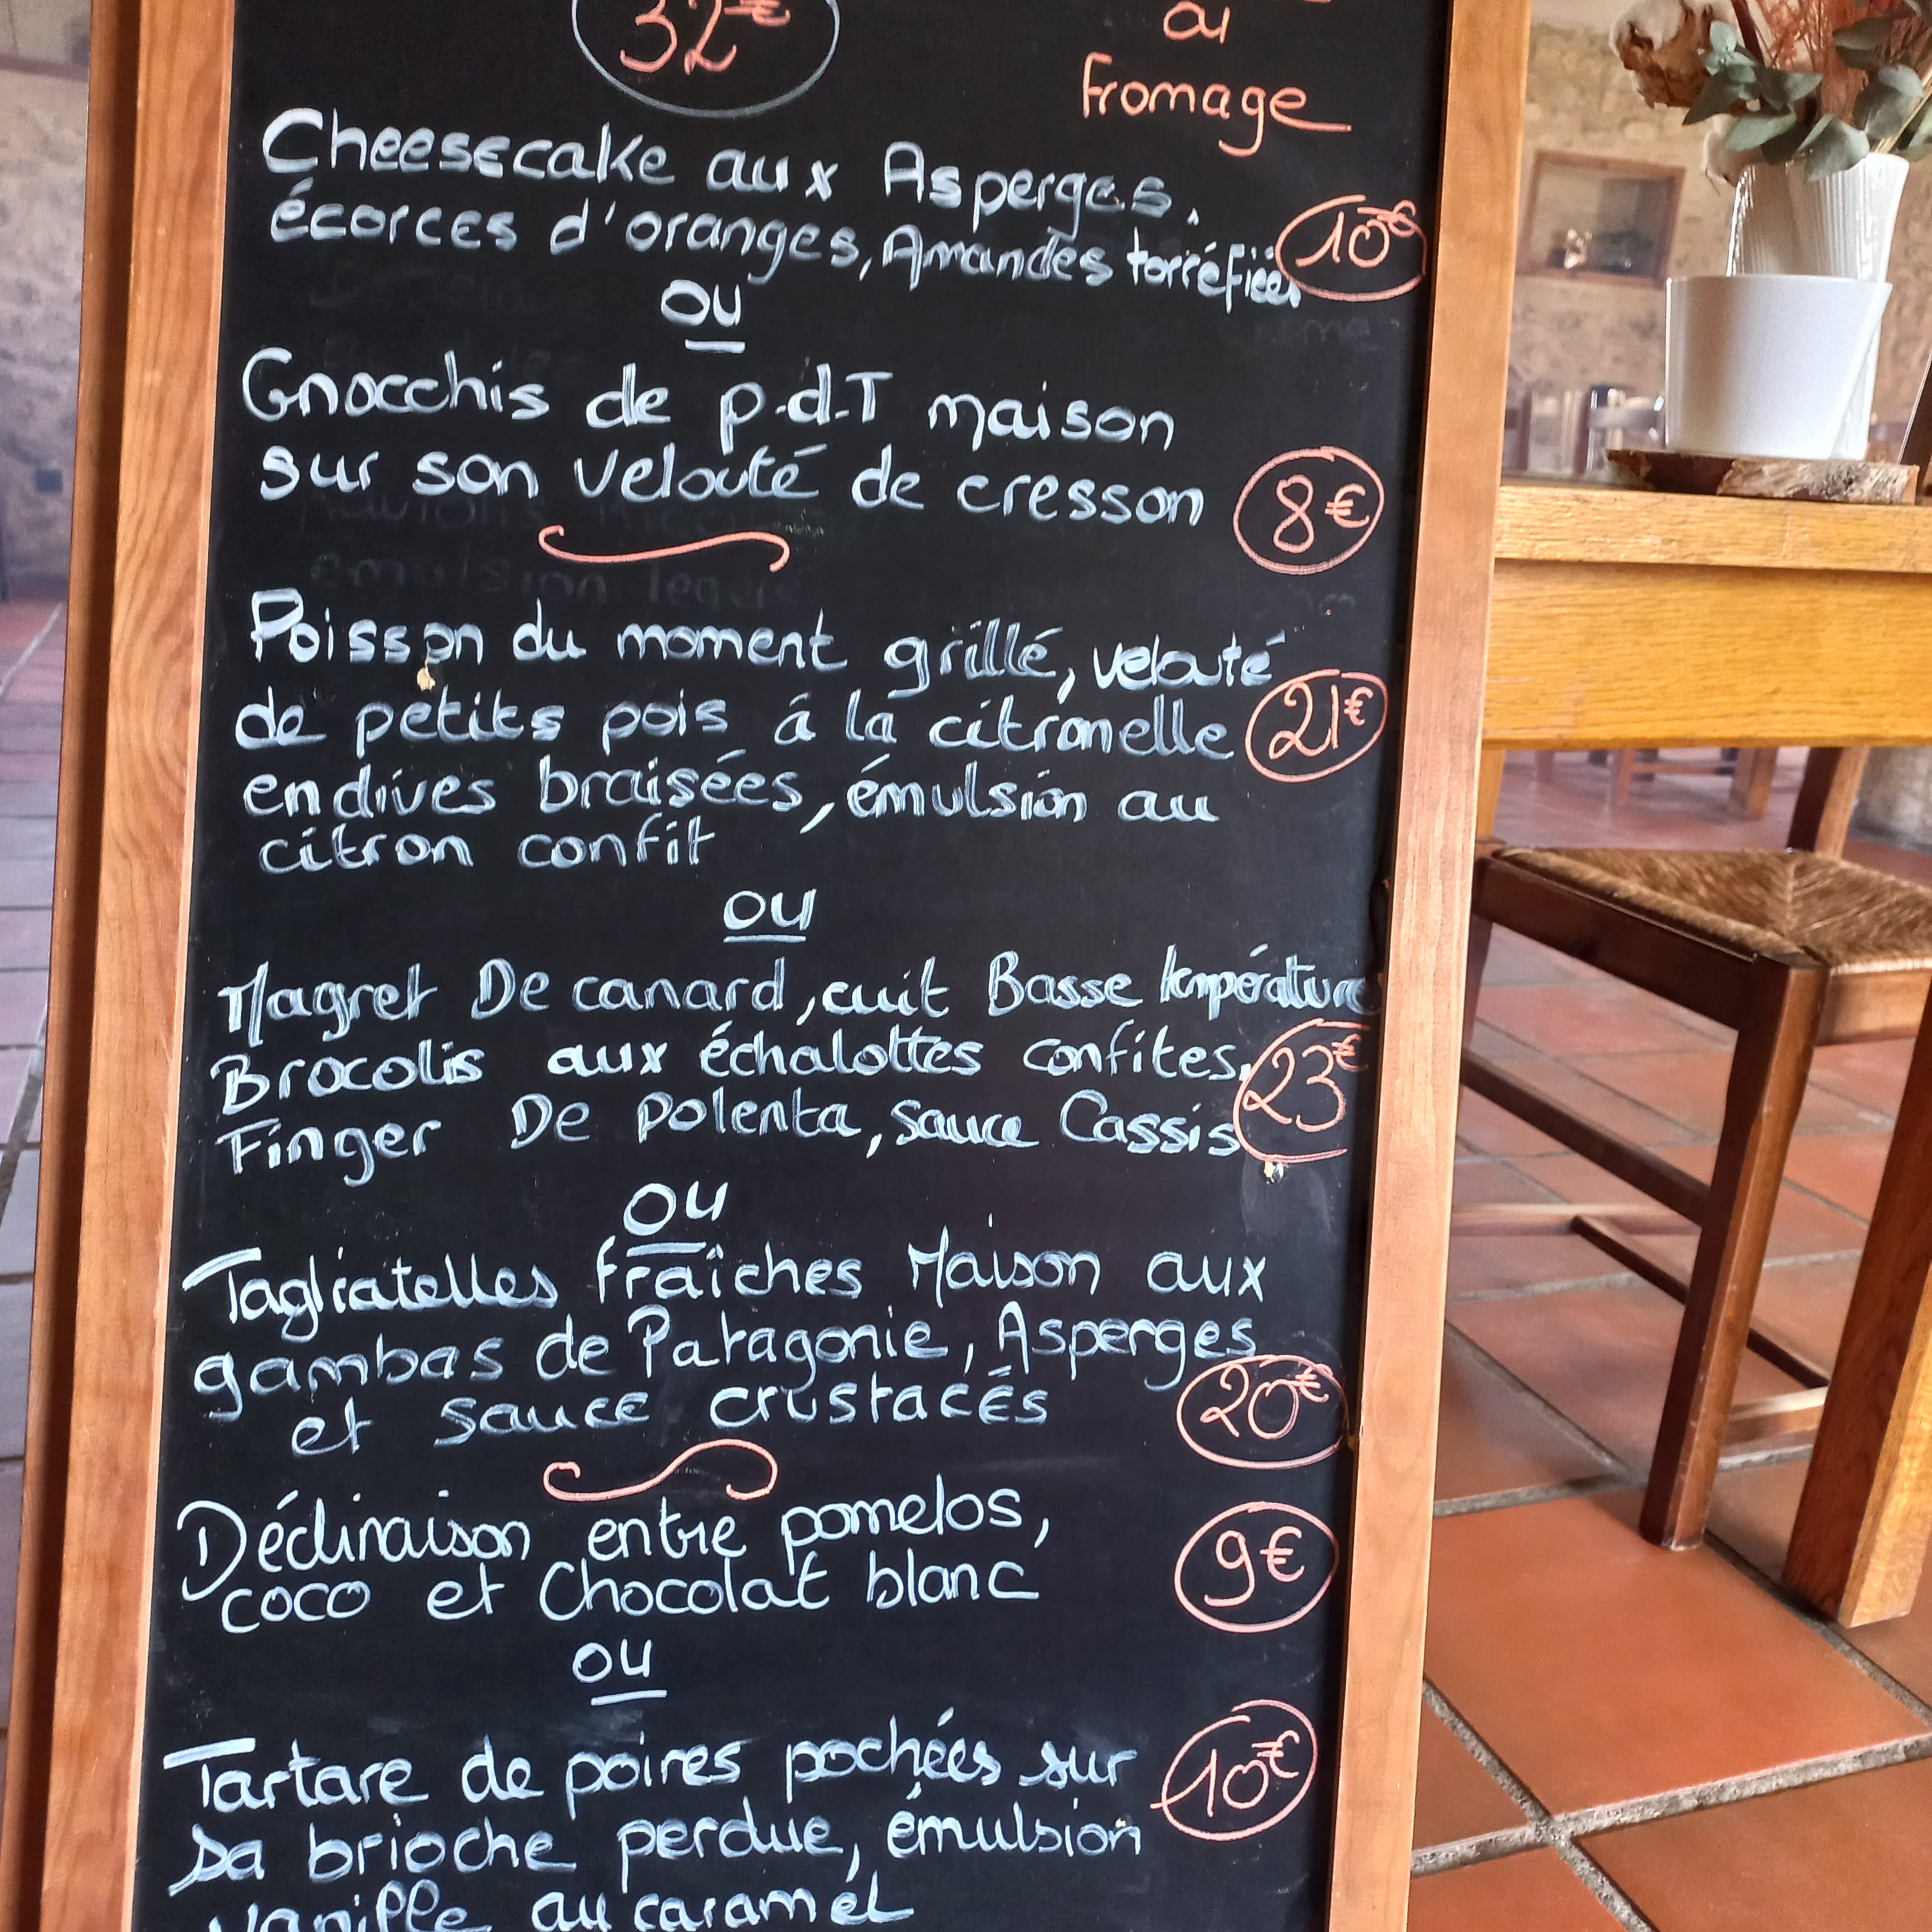 32€
ou
Fromage
Cheesecake aux Asperges,
écorces d'oranges, Amandes torréfiées
10€
ou
Gnocchis de p.d.T maison
sur son velouté de cresson
8€
Poisson du moment grillé, velouté
de petits pois á la citronelle
21€
endives braisées, émulsion au
citron confit
ou
Magret De canard, cuit Basse température
Brocolis aux échalottes confites,
23€
Finger De Polenta, sauce Cassis
ou
Tagliatelles fraîches Maison aux
gambas de Patagonie, Asperges
et sauce crustacés
20€
Déclinaison entre pomelos,
coco et Chocolat blanc
9€
ou
Tartare de poires pochées sur
10€
sa brioche perdue, émulsion
vanille au caramel